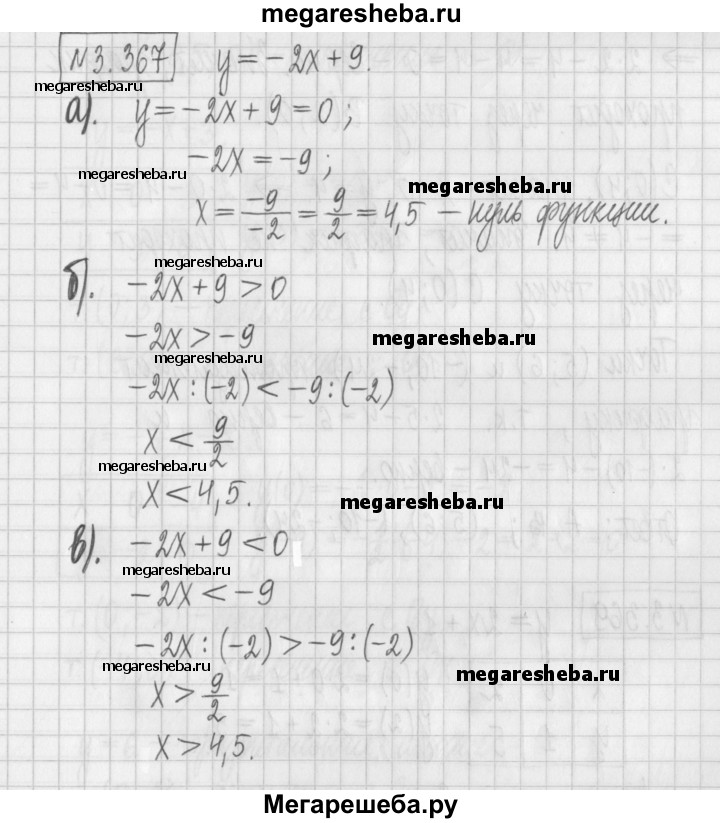 megaresheba.ru
№3.367 y = -2x + 9.
megaresheba.ru
а). y = -2x + 9 = 0;
-2x = -9;
megaresheba.ru megaresheba.ru
x = \frac{-9}{-2} = \frac{9}{2} = 4,5 – нуль функции.
megaresheba.ru
б). -2x + 9 > 0
-2x > -9 megaresheba.ru
megaresheba.ru
-2x : (-2) < -9 : (-2)
x < \frac{9}{2}
megaresheba.ru
x < 4,5. megaresheba.ru
в). -2x + 9 < 0
megaresheba.ru
-2x < -9
-2x : (-2) > -9 : (-2)
megaresheba.ru megaresheba.ru
x > \frac{9}{2}
x > 4,5.
Мегарешеба.ру